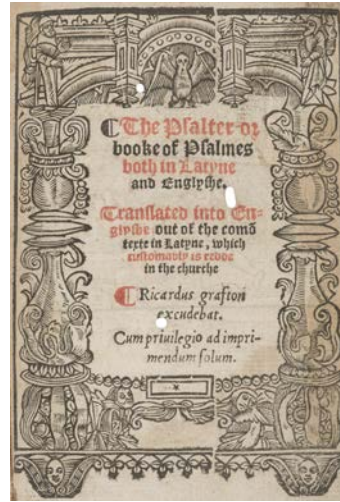 ¶The Psalter or
booke of Psalmes
both in Latyne
and Englyshe.
Translated into En-
glyshe out of the comō
texte in Latyne, which
customably is redde
in the churche
¶Ricardus grafton
excudebat.
Cum priuilegio ad impri-
mendum solum.